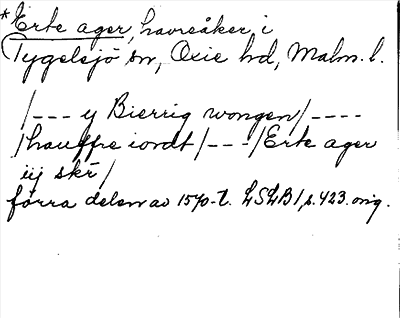 *Erte ager, havreåker, i
Tygelsjö sn, Oxie hd, Malm. l.
/--- y Bierrig wongen/----
/hauffre iordt/---/Erte ager
iij skr/
förra delen av 1570-t. LSLB 1, s. 423. orig.